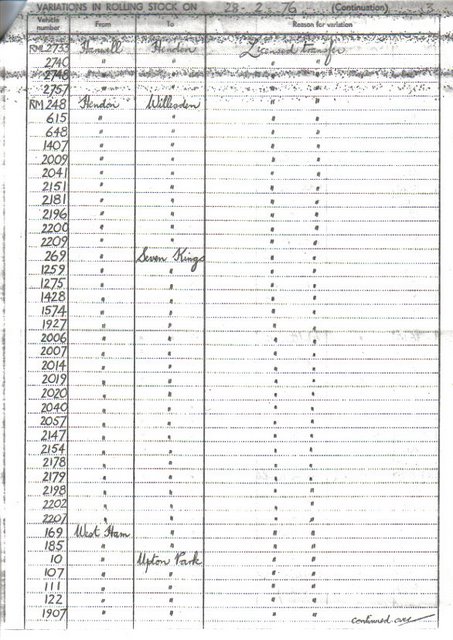 VARIATIONS IN ROLLING STOCK ON 28-2-76 (Continuation) 3
Vehicle number From To Reason for variation
RML2733 Hanwell Hendon Licensed transfer
2740 " " " "
2748 " " " "
2757 " " " "
RM 248 Hendon Willesden " "
615 " " " "
648 " " " "
1407 " " " "
2009 " " " "
2041 " " " "
2151 " " " "
2181 " " " "
2196 " " " "
2200 " " " "
2209 " " " "
269 " Seven Kings " "
1259 " " " "
1275 " " " "
1428 " " " "
1574 " " " "
1927 " " " "
2006 " " " "
2007 " " " "
2014 " " " "
2019 " " " "
2020 " " " "
2040 " " " "
2057 " " " "
2147 " " " "
2154 " " " "
2178 " " " "
2179 " " " "
2198 " " " "
2202 " " " "
2207 " " " "
169 West Ham " " "
185 " " " "
10 " Upton Park " "
107 " " " "
111 " " " "
122 " " " "
1907 " " " "
continued over